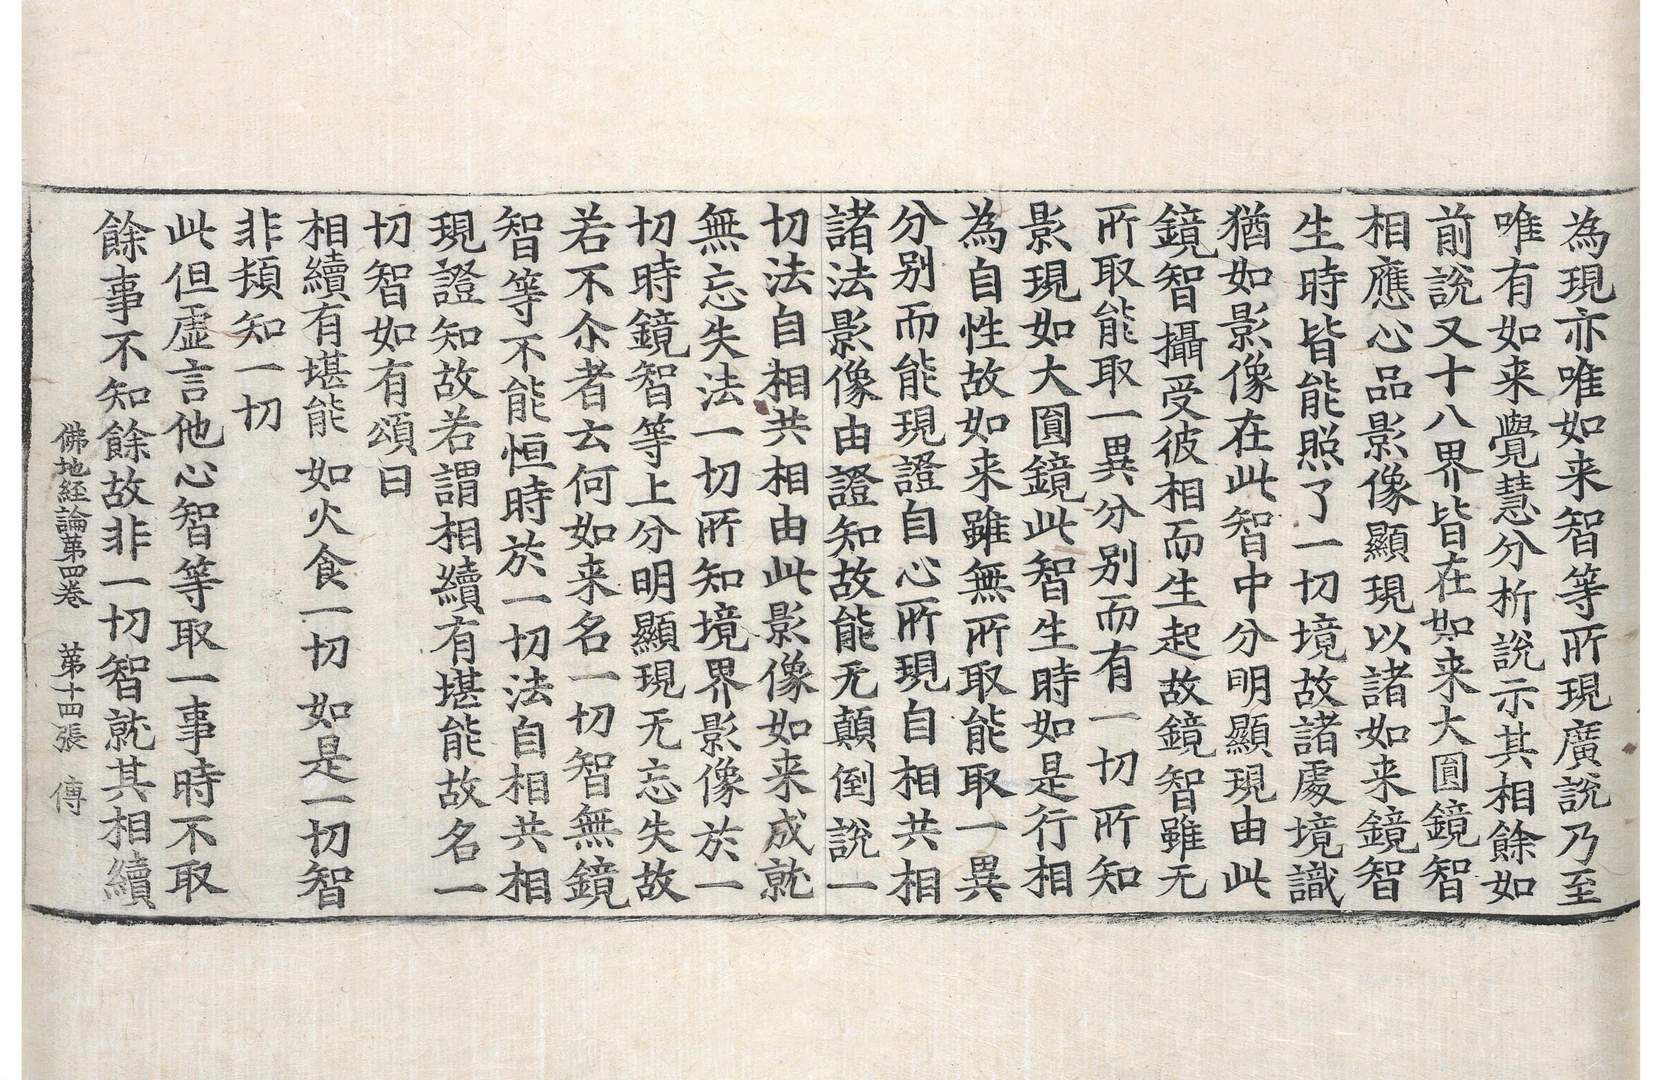 為現亦唯如来智等所現廣說乃至
唯有如来覺慧分析說示其相餘如
前說又十八界皆在如来大圓鏡智
相應心品影像顯現以諸如来鏡智
生時皆能照了一切境故諸處境識
猶如影像在此智中分明顯現由此
鏡智攝受彼相而生起故鏡智雖无
所取能取一異分别而有一切所知
影現如大圓鏡此智生時如是行相
為自性故如来雖無所取能取一異
分别而能現證自心所現自相共相
諸法影像由證知故能无顛倒說一
切法自相共相由此影像如来成就
無忘失法一切所知境界影像於一
切時鏡智等上分明顯現无忘失故
若不尒者云何如来名一切智無鏡
智等不能恒時於一切法自相共相
現證知故若謂相續有堪能故名一
切智如有頌曰
相續有堪能 如火食一切 如是一切智
非頓知一切
此但虛言他心智等取一事時不取
餘事不知餘故非一切智就其相續
佛地経論苐四卷 苐十四張 傳